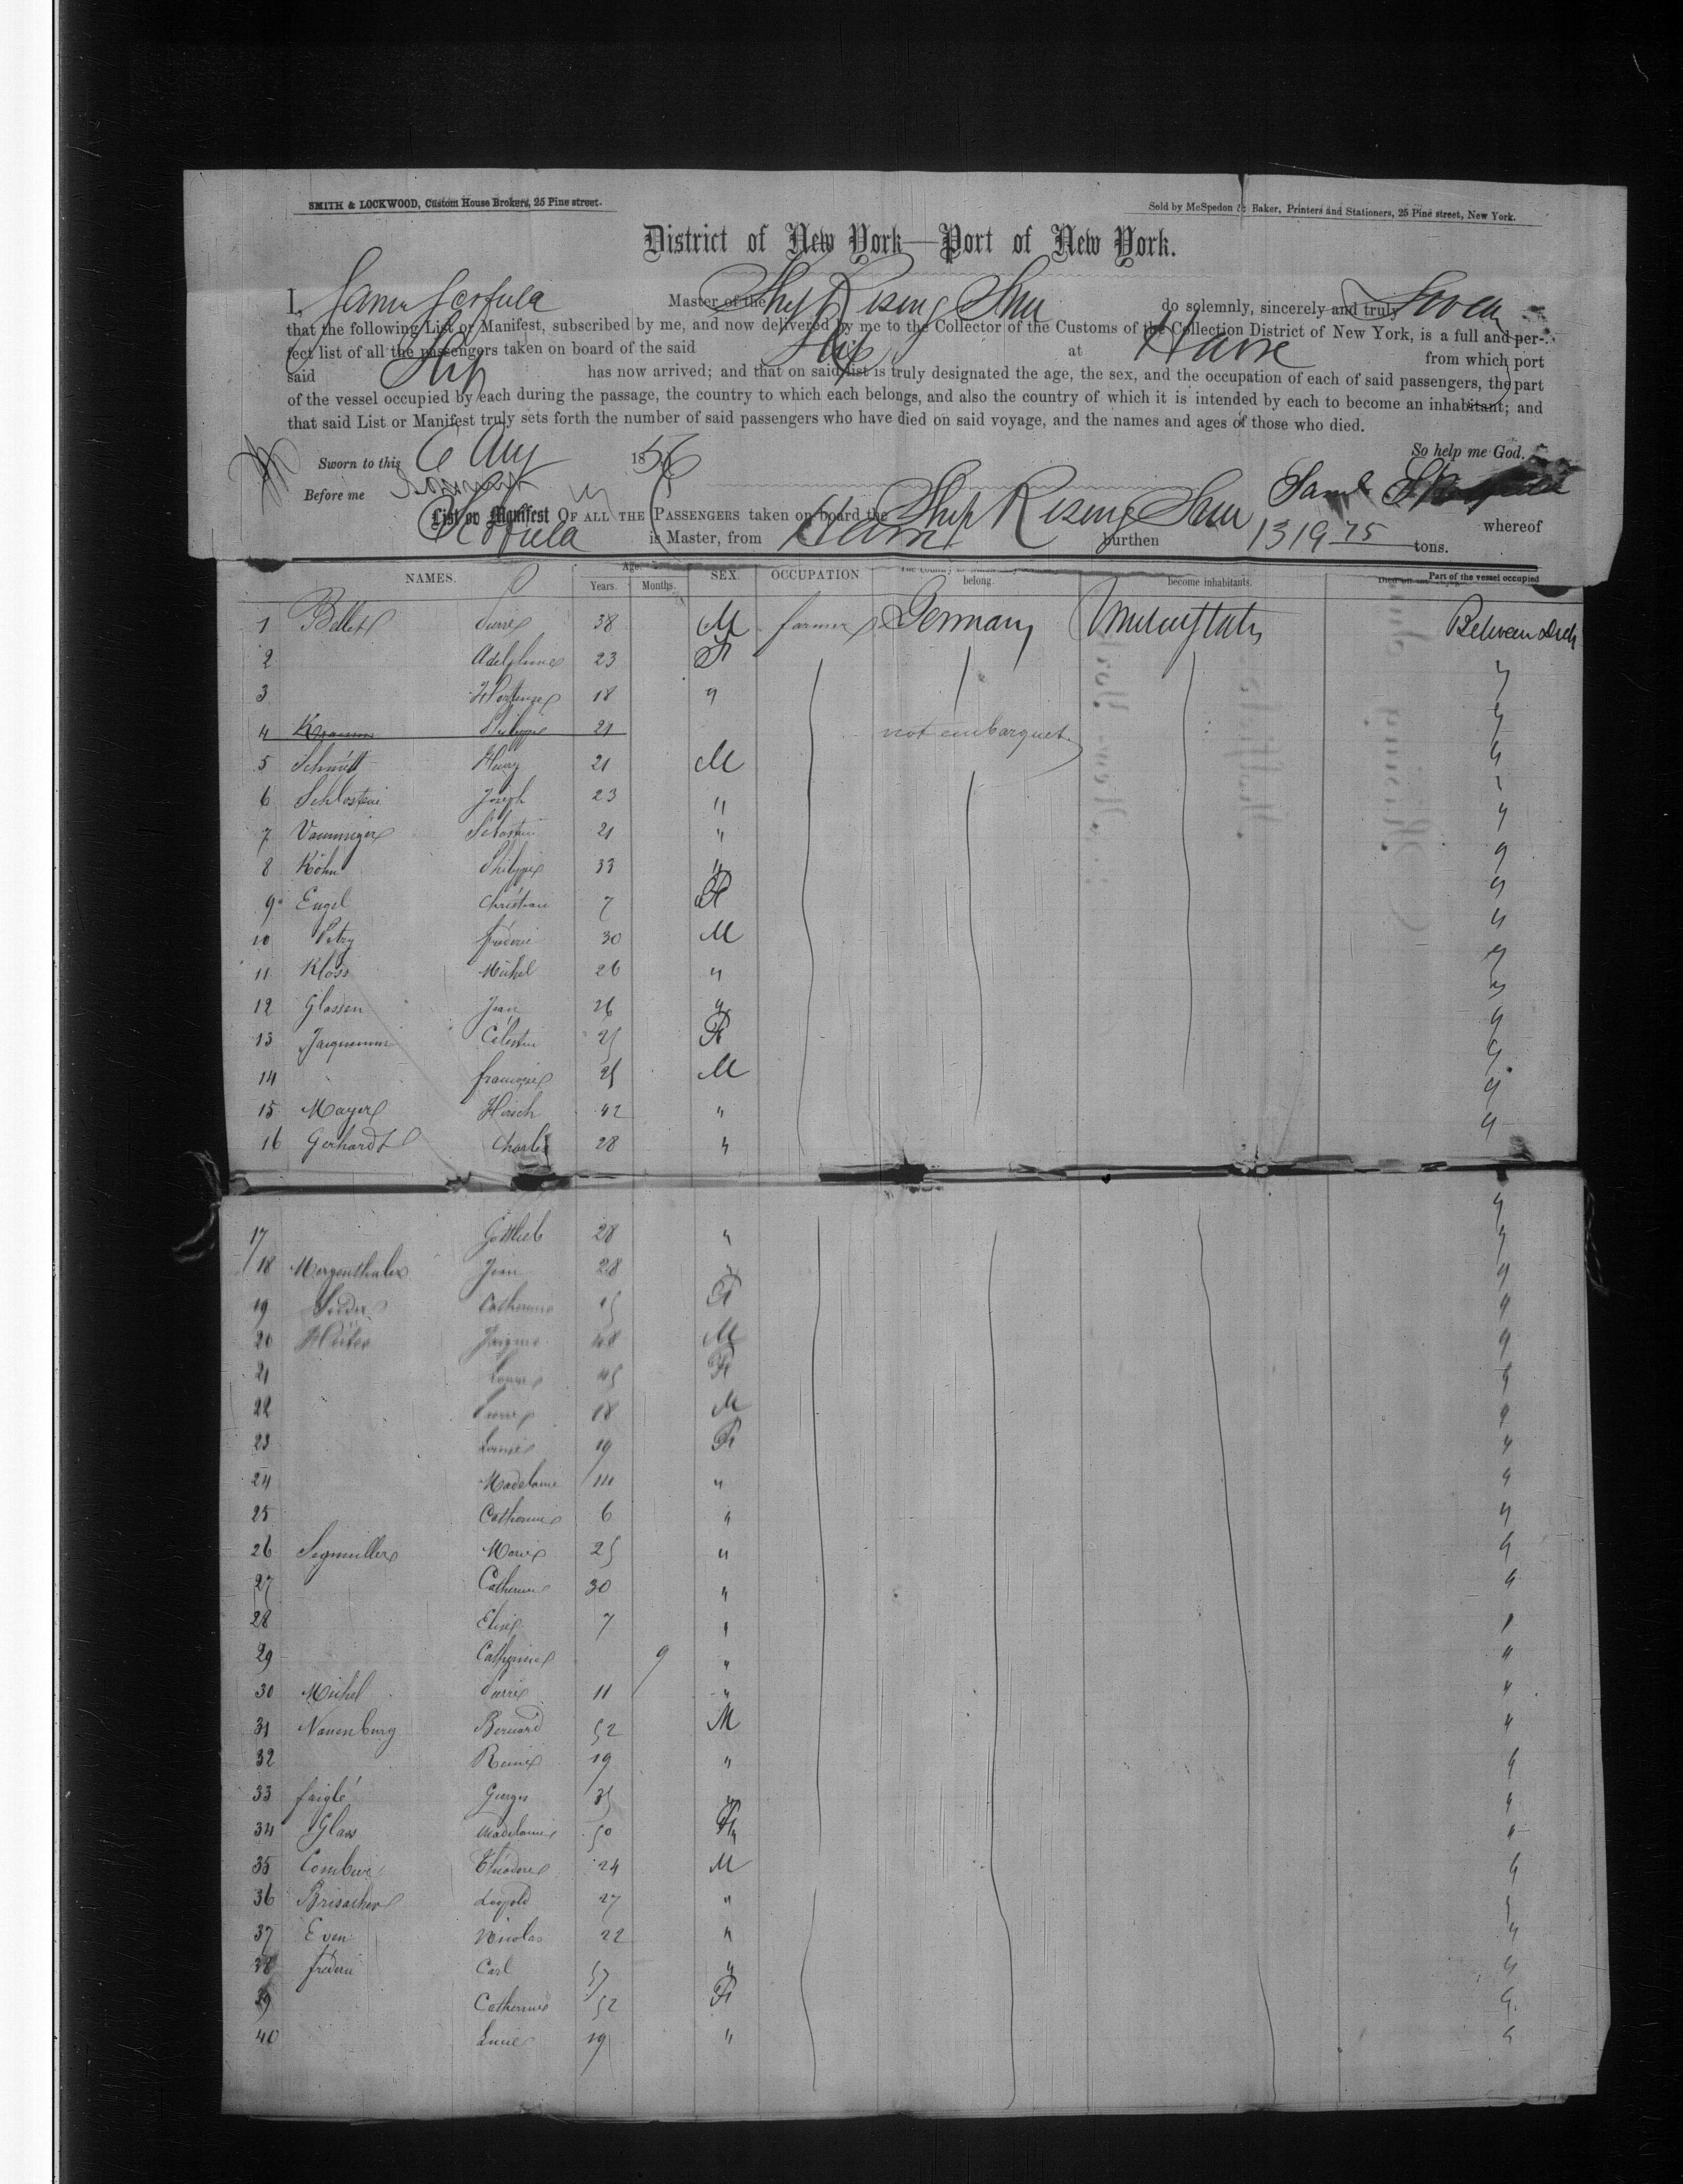 SMITH & LOCKWOOD, Custom House Brokers, 25 Pine street.
Sold by McSpedon & Baker, Printers and Stationers, 25 Pine street, New York.
District of New York—Port of New York.
I, Master of the Ship Rising Sun do solemnly, sincerely and truly Swear
that the following List or Manifest, subscribed by me, and now delivered by me to the Collector of the Customs of the Collection District of New York, is a full and per-
fect list of all the passengers taken on board of the said Ship at Havre from which port
said Ship has now arrived; and that on said list is truly designated the age, the sex, and the occupation of each of said passengers, the part
of the vessel occupied by each during the passage, the country to which each belongs, and also the country of which it is intended by each to become an inhabitant; and
that said List or Manifest truly sets forth the number of said passengers who have died on said voyage, and the names and ages of those who died.
So help me God.
Sworn to this 6 Aug 1856
Before me
List or Manifest OF ALL THE PASSENGERS taken on board the Ship Rising Sun whereof
is Master, from Havre burthen 1319 75 tons.
NAMES. Age. Years. Months. SEX. OCCUPATION. belong. become inhabitants. Part of the vessel occupied
1 Pierre 38 M farmer Germany United States Between Deck
2 Adelphine 23 F
3 Hortense 18 "
4 Philippe 21 not embarquet
5 Schmitt Henry 21 M
6 Joseph 23 "
7 Sebastien 21 "
8 Köhn Philippe 33 "
9 Engel Christian 7 F
10 Petry frédéric 30 M
11 Kloss Michel 26 "
12 Glassen Jean 26 "
13 Jacquemin Célestin 25 F
14 françois 25 M
15 Mayer Hirsch 42 "
16 Gerhardt Charles 28 "
17 Gottlieb 28 "
18 Morgenthaler Jean 28 "
19 Catherine 15 F
20 Jacques 48 M
21 Louise 45 F
22 Pierre 18 M
23 Louise 19 F
24 Madelaine "
25 Catherine 6 "
26 Segmuller Marie 25 "
27 Catherine 30 "
28 Elise 7 "
29 Catherine 9 "
30 Michel Pierre 11 "
31 Nanenburg Bernard 52 M
32 19 "
33 faiglé Georges 35 "
34 Glass Madelaine 50 F
35 Théodore 24 M
36 Brisacher Leopold 27 "
37 Even Nicolas 22 "
38 fréderic Carl 57 "
39 Catherine 52 F
40 Lucie 19 "